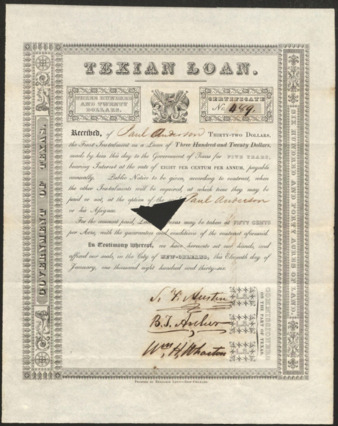 TEXIAN LOAN.
THREE HUNDRED
AND TWENTY
DOLLARS.
CERTIFICATE
No. 449.
GOVERNMENT OF TEXAS.
Received, of Paul Anderson THIRTY-TWO DOLLARS,
the first Instalment on a Loan of Three Hundred and Twenty Dollars,
made by him this day to the Government of Texas for FIVE YEARS,
bearing Interest at the rate of EIGHT PER CENTUM PER ANNUM, payable
annually. Public Notice to be given, according to contract, when
the other Instalments will be required, at which time they may be
paid or not, at the option of the Paul Anderson
or his Assigns.
For the amount paid, Land may be taken at FIFTY CENTS
per Acre, with the guarantees and conditions of the contract aforesaid.
In Testimony whereof, we have hereunto set our hands, and
affixed our seals, in the City of NEW-ORLEANS, this Eleventh day of
January, one thousand eight hundred and thirty-six.
S. F. Austin
B. T. Archer
Wm. H. Wharton
COMMISSIONERS
ON THE PART OF TEXAS.